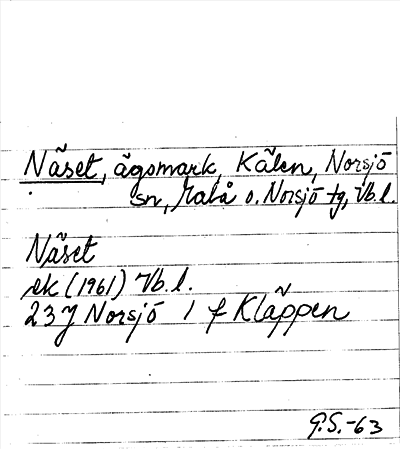 Näset, ägomark, Kålen, Norsjö
sn, Malå o. Norsjö tg, Vb.l.
Näset
ek (1961) Vb.l.
23 J Norsjö 1 f Kläppen
G.S.-63